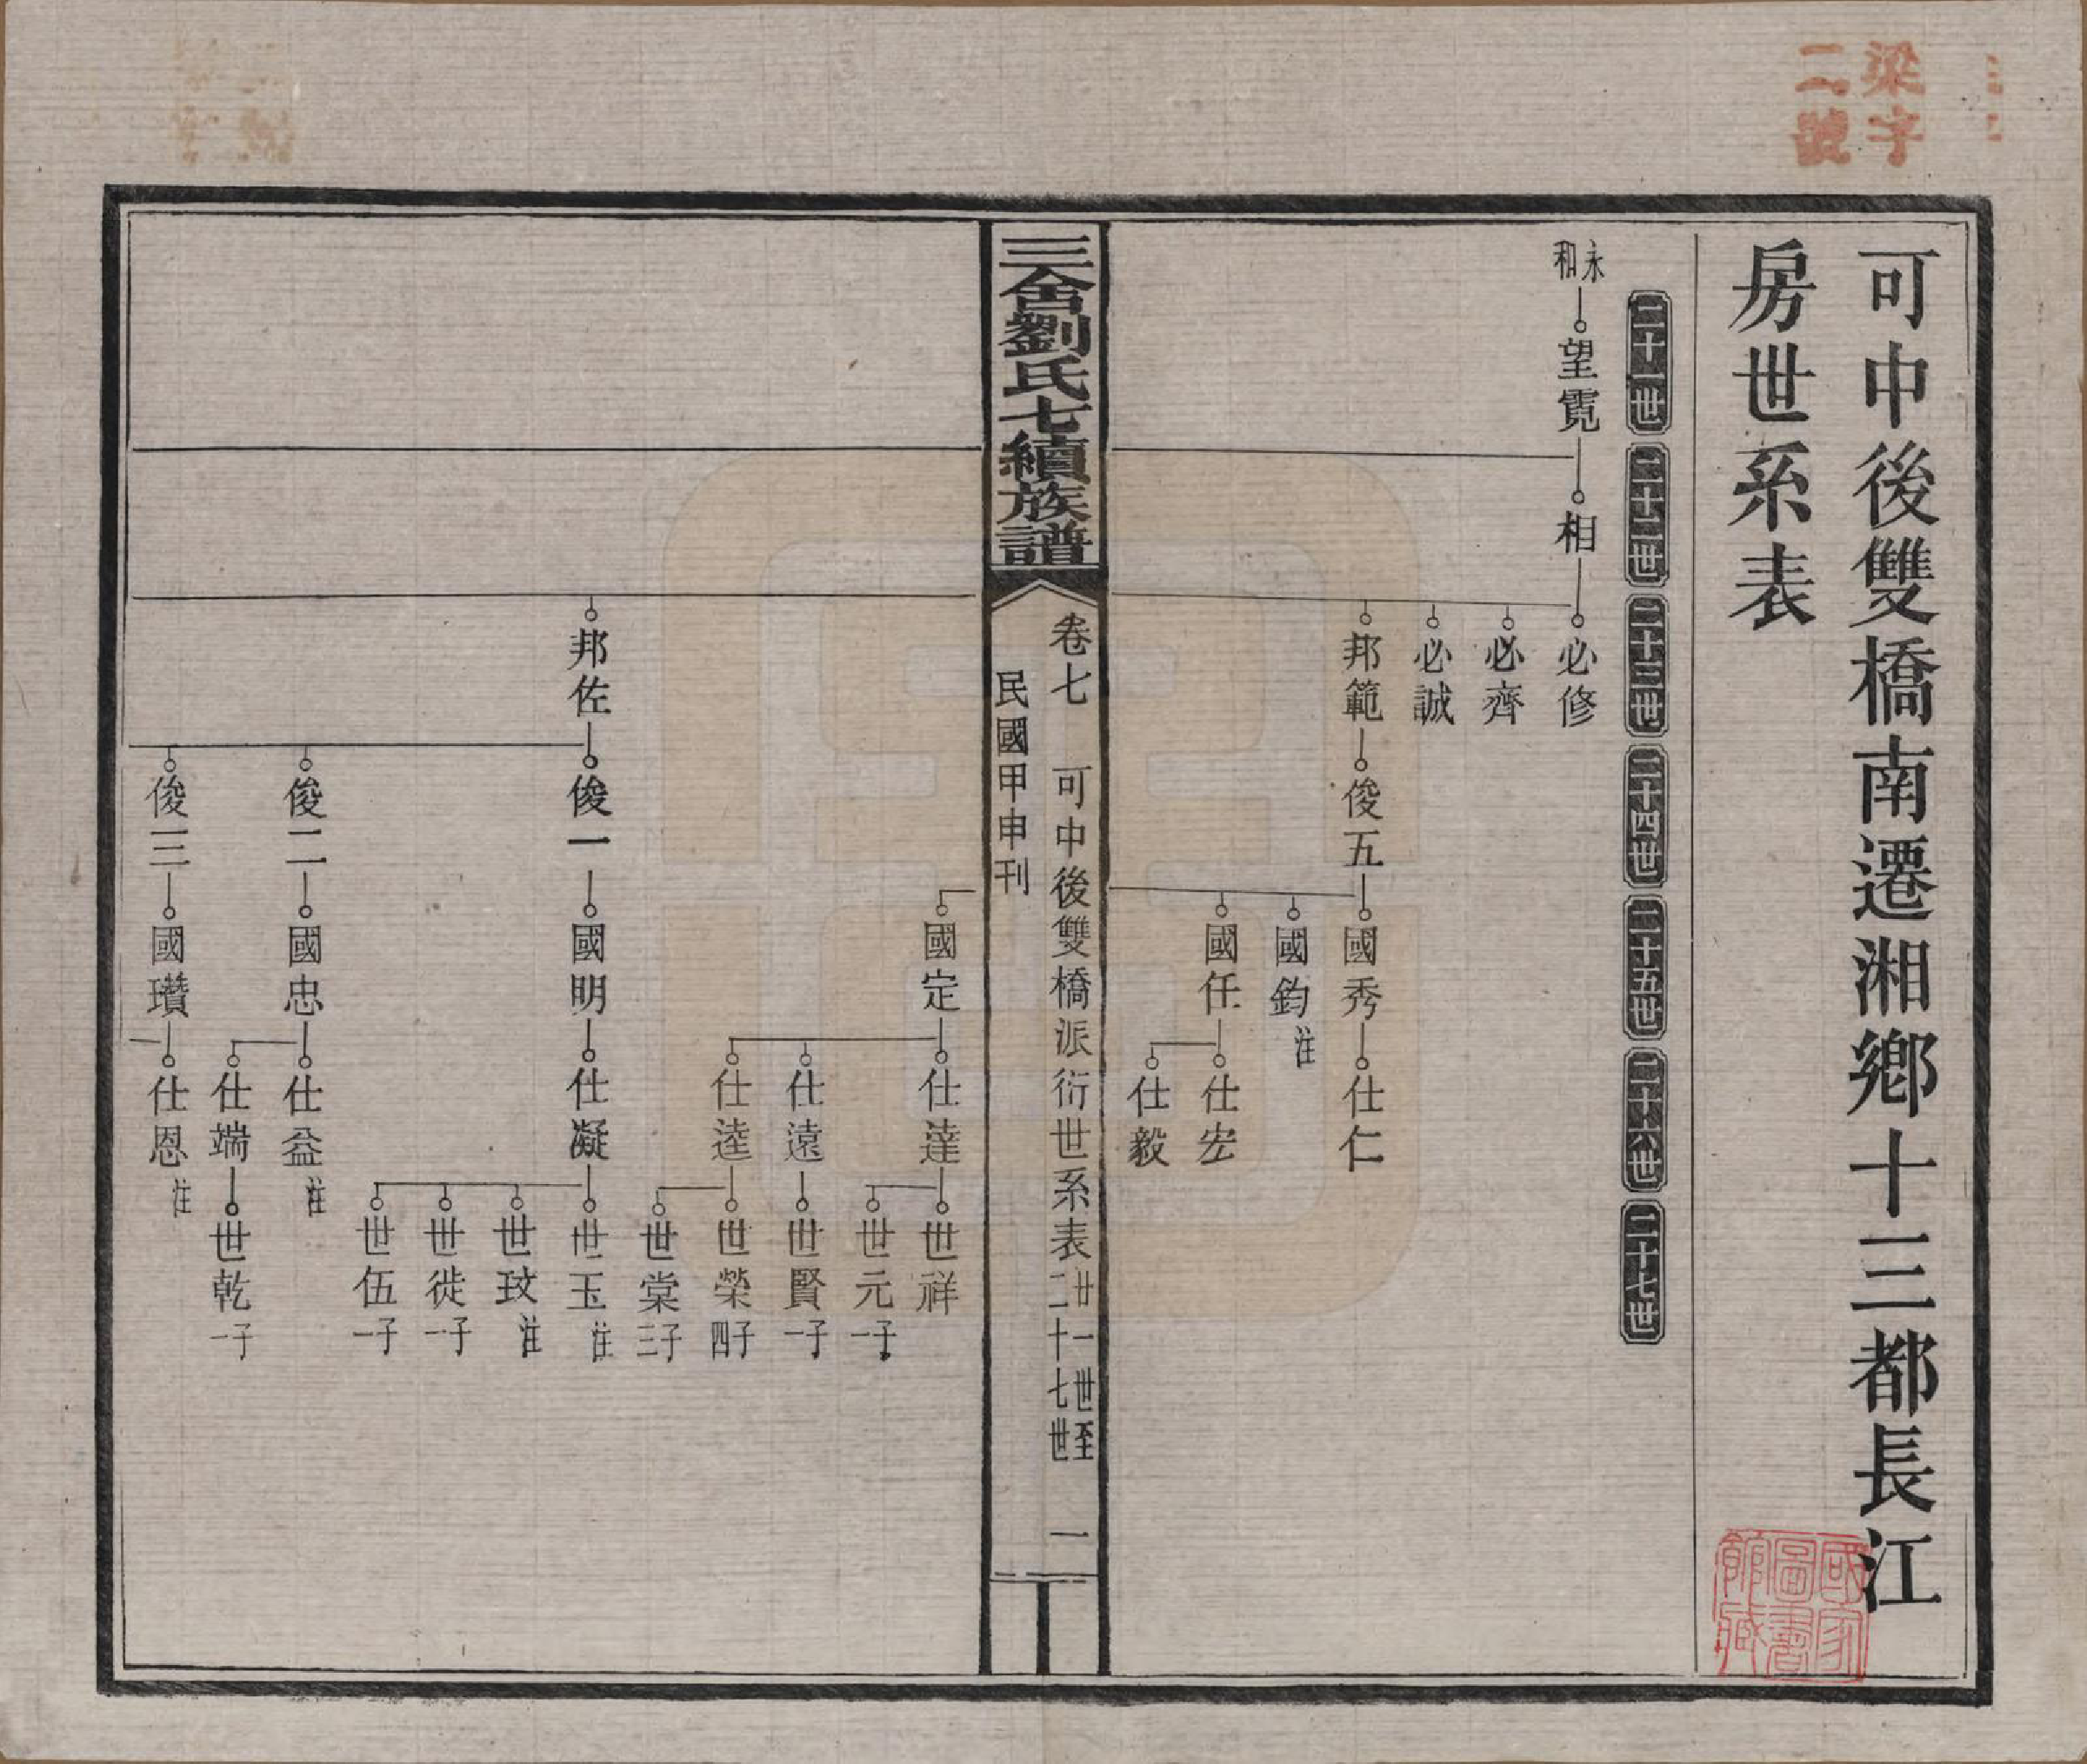 梁字
二號
可中後雙橋南遷湘鄉十三都長江
房世系表
二十一世
二十二世
二十三世
二十四世
二十五世
二十六世
二十七世
永和
望霓
相
必修
必齊
必誠
邦範
俊五
國秀
仕仁
國鈞 注
國任
仕宏
仕毅
三舍劉氏七續族譜
卷七 可中後雙橋派衍世系表 廿一世至二十七世 一
民國甲申刊
國定
仕達
世祥
世元 一子
仕遠
世賢 一子
仕逵
世榮 四子
世棠 三子
邦佐
俊一
國明
仕凝
世玉 注
世玟 注
世徙 一子
世伍 一子
俊二
國忠
仕益 注
仕端
世乾 一子
俊三
國瓚
仕恩 注
國家
圖書
館藏